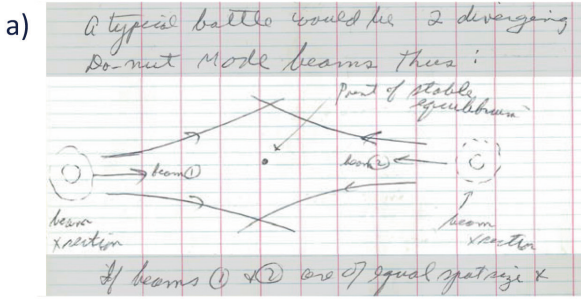 a)
A typical battle would be 2 diverging
Do-nut Mode beams thus :
Point of stable
equilibrium
beam ①
beam ②
beam
xsection
beam
xsection
If beams ① + ② are of equal spot size &